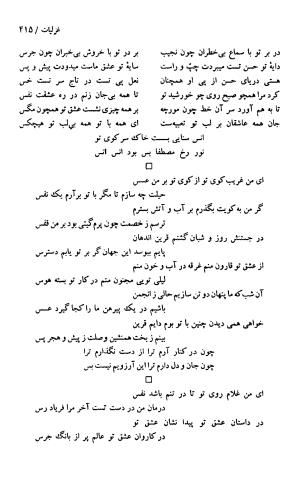 غزلیات / ۴۱۵
بر در تو با سماع بی‌خطران چون نجیب
بر در تو با خروش بی‌خبران چون جرس
دایهٔ تو حسن تست میبردت چپ و راست
سایهٔ تو عشق ماست میدودت پیش و پس
هستی دریای حسن از پی او همچنان
نعل پی تست در تاج سر تست خس
کرد مرا همچو صبح روی چو خورشید تو
تا همه بی‌جان زنم در ره عشقت نفس
تا به هم آورد سر آن خط چون مورچه
بر همه چیزی نشست عشق تو همچون مگس
جان همه عاشقان بر لب تو تعبیه‌ست
ای همه با تو همه بی‌لب تو هیچکس
انس سنایی بست خاک سر کوی تو
نور رخ مصطفا بس بود انس انس
ای من غریب کوی تو از کوی تو بر من عسس
حیلت چه سازم تا مگر با تو برآرم یک نفس
گر من به کویت بگذرم بر آب و آتش بسترم
ترسم ز خصمت چون پرم گیتی بود بر من قفس
در جستنش روز و شبان گشتم قرین اندهان
پایم ببوسد این جهان گر بر تو یابم دسترس
از عشق تو قارون منم غرقه در آب و خون منم
لیلی تویی مجنون منم در کار تو بسته هوس
آن شب که ما پنهان دو تن سازیم حالی ز انجمن
باشیم در یک پیرهن ما را کجا گیرد عسس
خواهی همی دیدن چنین با تو بوم دایم قرین
بینم ز بخت همنشین وصلت ز پیش و هجر پس
چون در کنار آرم ترا از دست نگذارم ترا
چون جان و دل دارم ترا این آرزویم نیست بس
ای من غلام روی تو تا در تنم باشد نفس
درمان من در دست تست آخر مرا فریاد رس
در داستان عشق تو پیدا نشان عشق تو
در کاروان عشق تو عالم پر از بانگ جرس